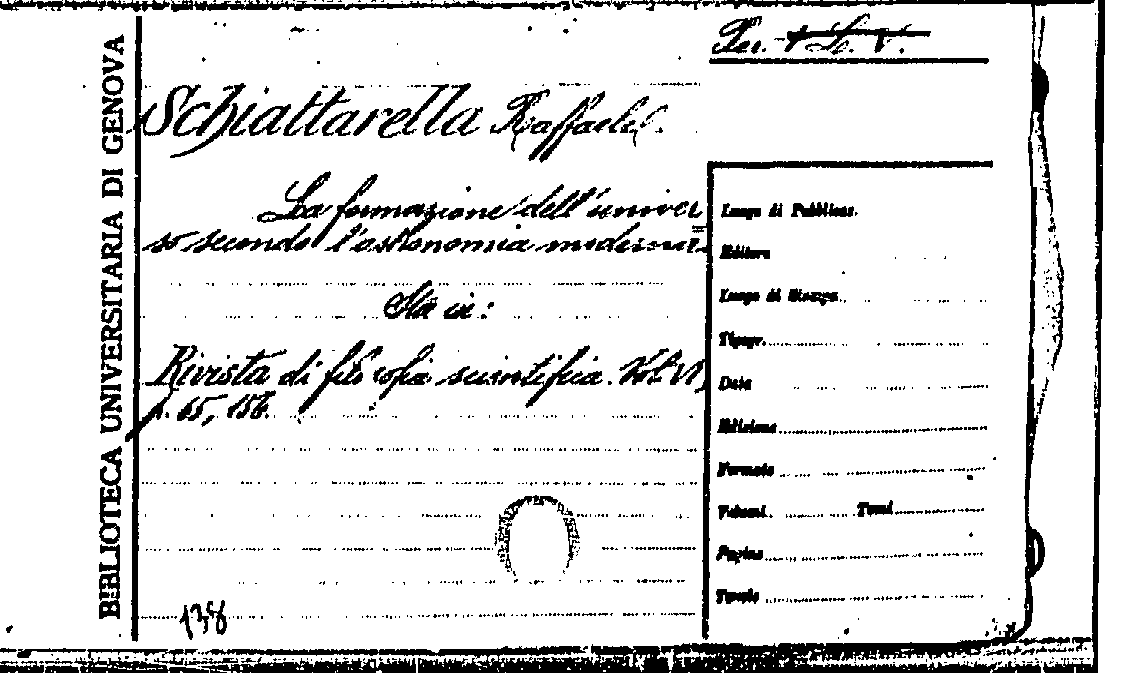 BIBLIOTECA UNIVERSITARIA DI GENOVA
Per.
Schiattarella Raffaele.
La formazione dell'univer
so secondo l'astronomia moderna.
Sta in:
Rivista di filosofia scientifica. Vol. VI,
p. 65, 156.
138
Luogo di Pubblicaz.
Editore
Luogo di Stampa
Tipogr.
Data
Edizione
Formato
Volumi Tomi
Pagine
Tavole